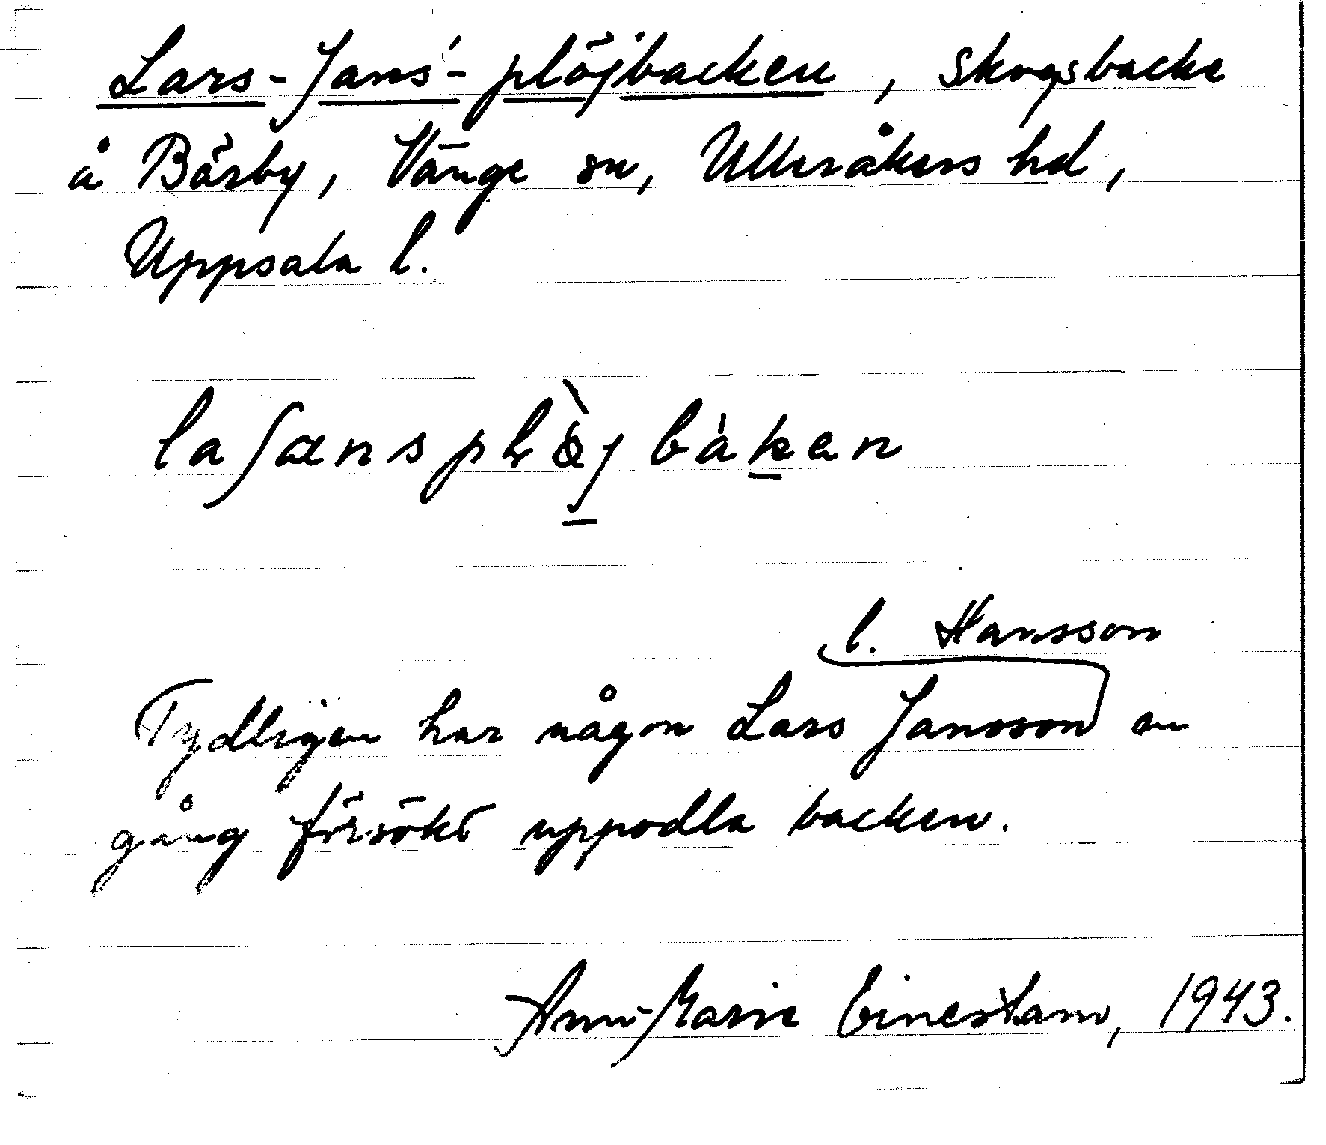 Lars-Jans'-plöjbacken, skogsbacke
å Bärby, Vänge sn, Ulleråkers hd,
Uppsala l.
l. Hansson
Tydligen har någon Lars Jansson en
gång försökt uppodla backen.
Ann-Marie 1943.